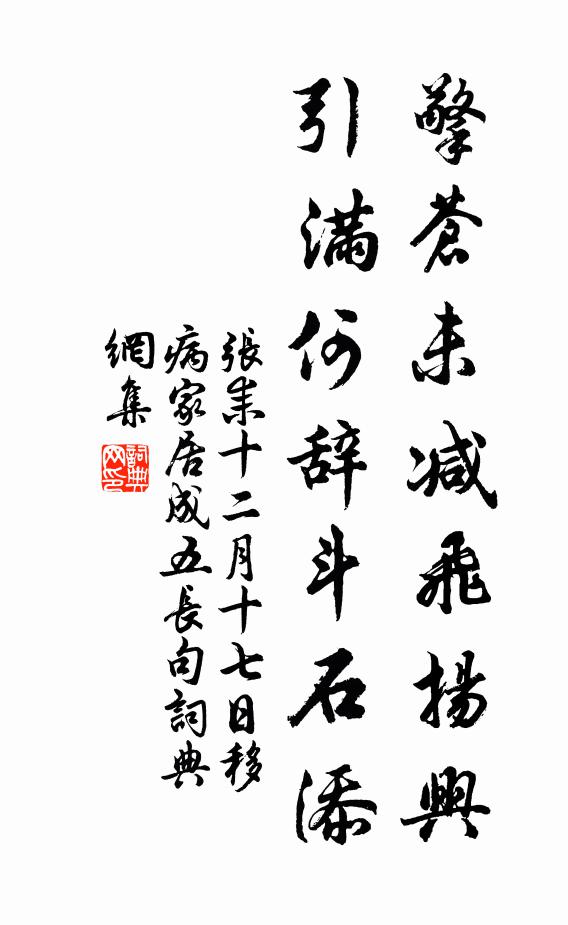 擎蒼未减飛揚興
引滿何辞斗石添
張耒十二月十七日移
病家居成五長句詞典
網集
詞典
网印